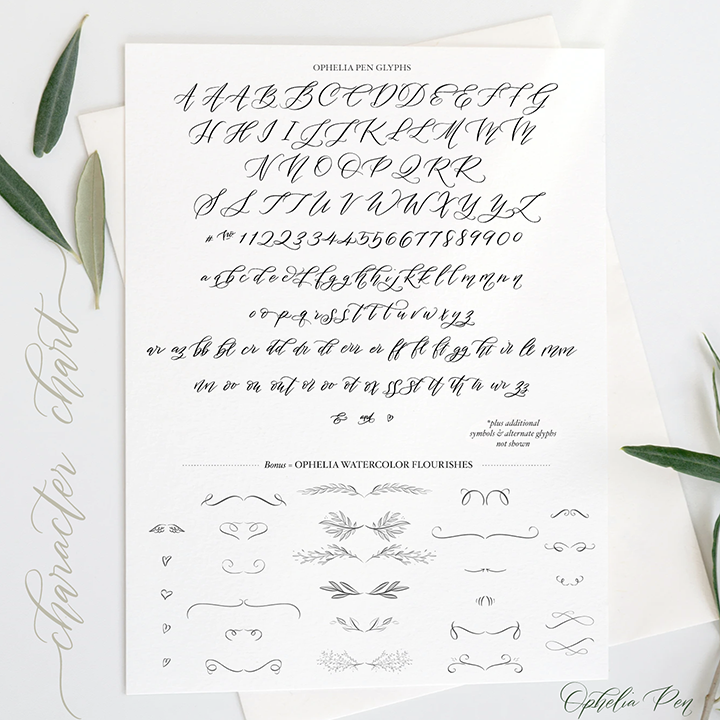 OPHELIA PEN GLYPHS
A A A B B C C D D E E F F G
H H I I J J K L L M M M
N N O O P Q R R
S S T T U V W W X Y Y Z
# No 1 1 2 2 3 3 4 4 5 5 6 6 7 7 8 8 9 9 0 0
a a b b c d e e d f f g g h h i j k k l l m m n n
o o p q r s s t t t u v w x y z
ar az bb bl cr dd dr di err er ff fl fi gg hi ir le mm
nn oo ou out or oo ot ox ss st tt th tu wr zz
& and
*plus additional
symbols & alternate glyphs
not shown
Bonus = OPHELIA WATERCOLOR FLOURISHES
character chart
Ophelia Pen